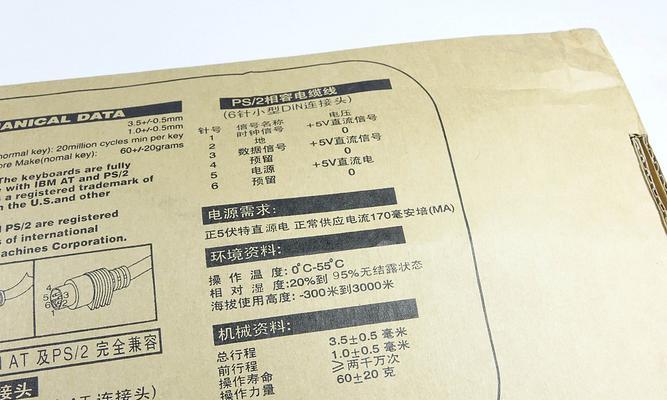 ANICAL DATA
3.5+/-0.5mm
1.0+/-0.5mm
normal key): 20million cycles min per key
ore Make(nomal key): 60+/-20grams
The keyboards are fully
e with IBM AT and PS/2
s a registered trademark of
n the U.S.and other
PS/2 are registered
s of international
achines Corporation.
4
2
1
6
5
3
AT 及PS/2 完全兼容
接头
AT 连接头)
PS/2相容电缆线
(6针小型DIN连接头)
针号 信号名称 电压
1 时钟信号 +5V直流信号
2 地 0
3 数据信号 +5V直流信号
4 预留 0
5 电源 +5V直流电
6 预留 0
电源需求:
正5伏特直源电 正常供应电流170毫安培(MA)
环境资料:
操作温度: 0°C-55°C
相对湿度: 20%到 95%无结露状态
海拔使用高度: -300米到3000米
机械资料:
总行程 3.5±0.5 毫米
前行程 1.0±0.5 毫米
操作寿命 ≥两千万次
操作力量 60±20 克